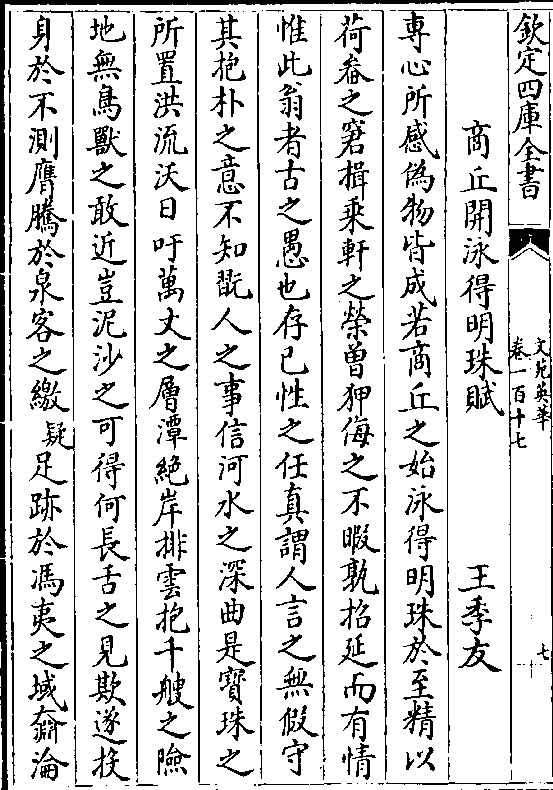 欽定四庫全書
文苑英華
卷一百十七
七
商丘開泳得明珠賦　王季友
專心所感偽物皆成若商丘之始泳得明珠於至精以
荷畚之窘揖乘軒之榮曽狎侮之不暇孰招延而有情
惟此翁者古之愚也存已性之任真謂人言之無假守
其抱朴之意不知翫人之事信河水之深曲是寳珠之
所置洪流沃日吁萬丈之層潭絶岸排雲抱千艘之險
地無鳥獸之敢近豈泥沙之可得何長舌之見欺遂投
身於不測膺騰於泉客之繳疑足跡於馮夷之域奫淪